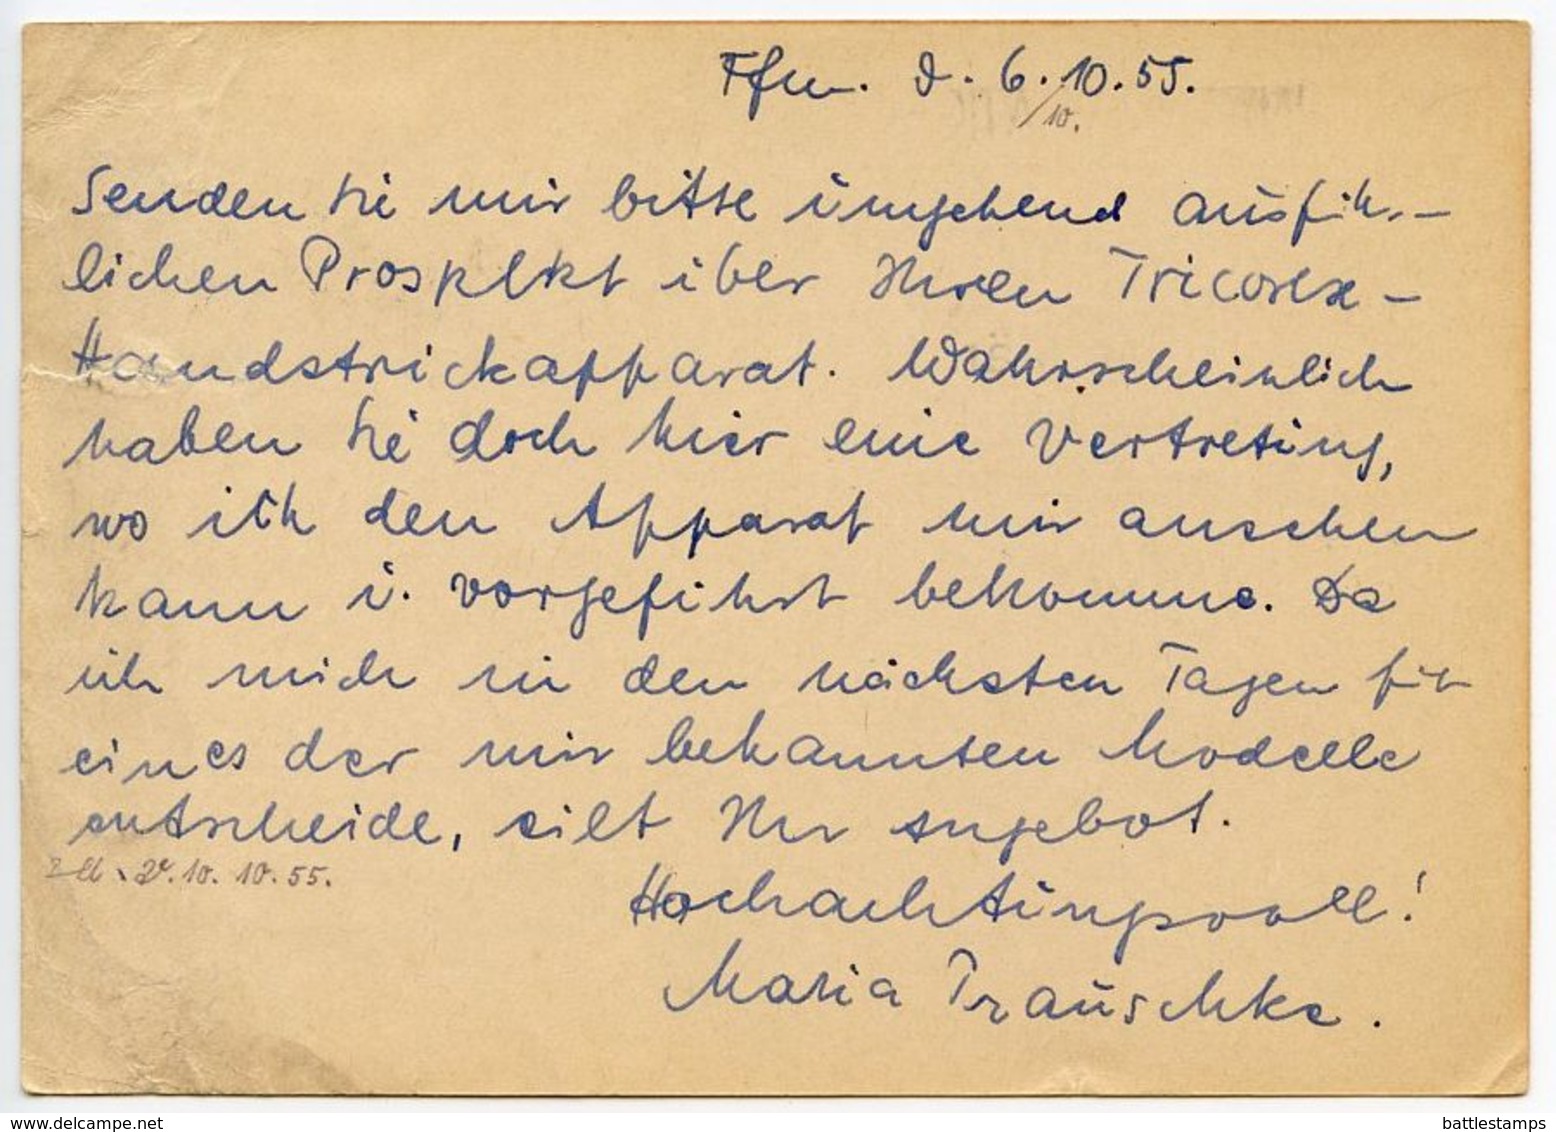 Ffm. d. 6.10.55.
10.
Senden Sie mir bitte umgehend ausführ-
lichen Prospekt über Ihren Tricorex-
Handstrickapparat. Wahrscheinlich
haben Sie doch hier eine Vertretung,
wo ich den Apparat mir ansehen
kann u. vorgeführt bekomme. Da
ich mich in den nächsten Tagen für
eines der mir bekannten Modelle
entscheide, eilt Ihr Angebot.
10. 10. 55.
Hochachtungsvoll!
Maria Trauschke.
www.delcampe.net
battlestamps